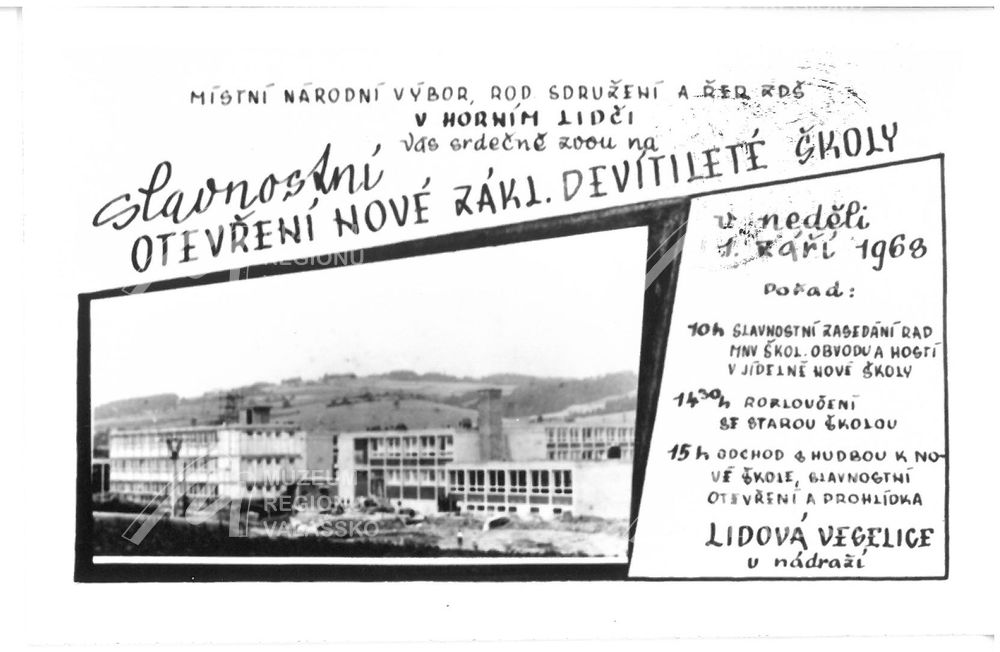 MÍSTNÍ NÁRODNÍ VÝBOR, ROD. SDRUŽENÍ A ŘER ZDŠ
V HORNÍM LIDČI
Vás srdečně zvou na
slavnostní
OTEVŘENÍ NOVÉ ZÁKL. DEVÍTILETÉ ŠKOLY
v neděli
1. září 1968
Pořad:
10h SLAVNOSTNÍ ZASEDÁNÍ RAD
MNV ŠKOL. OBVODU A HOSTÍ
V JÍDELNĚ NOVÉ ŠKOLY
14³⁰h ROZLOUČENÍ
SE STAROU ŠKOLOU
15h ODCHOD S HUDBOU K NO-
VÉ ŠKOLE, SLAVNOSTNÍ
OTEVŘENÍ A PROHLÍDKA
LIDOVÁ VESELICE
u nádraží
MUZEUM
REGIONU
VALAŠSKO